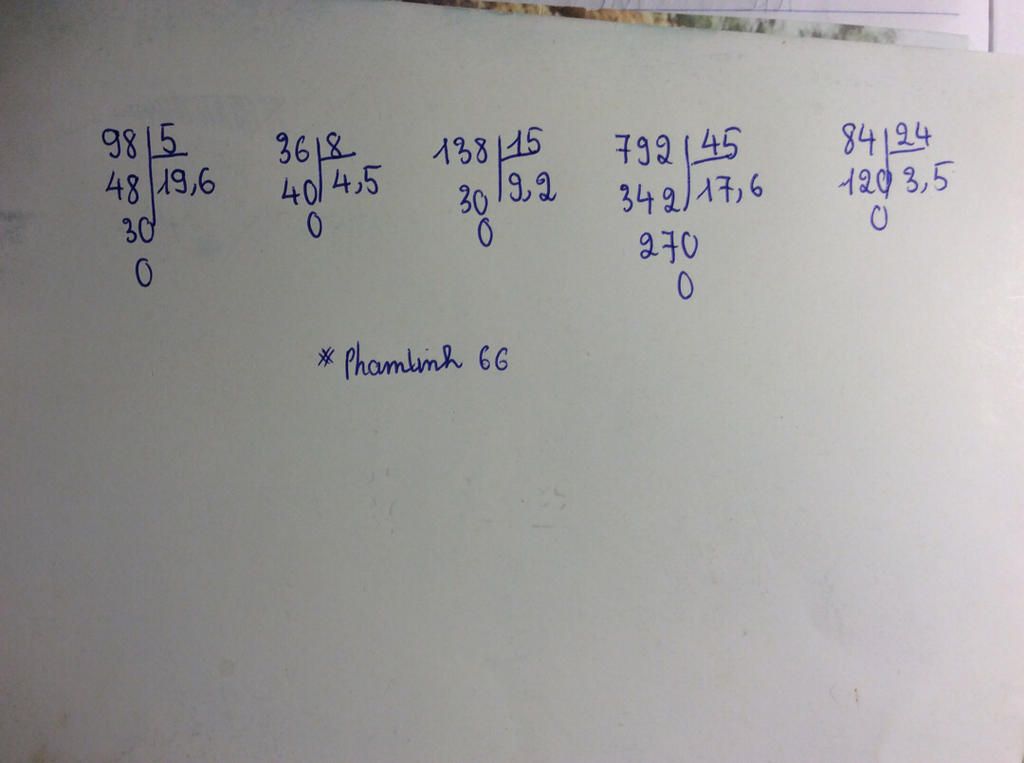 98 5
48 19,6
30
0
36 8
40 4,5
0
138 15
30 9,2
0
792 45
342 17,6
270
0
84 24
120 3,5
0
* Phamlinh 66